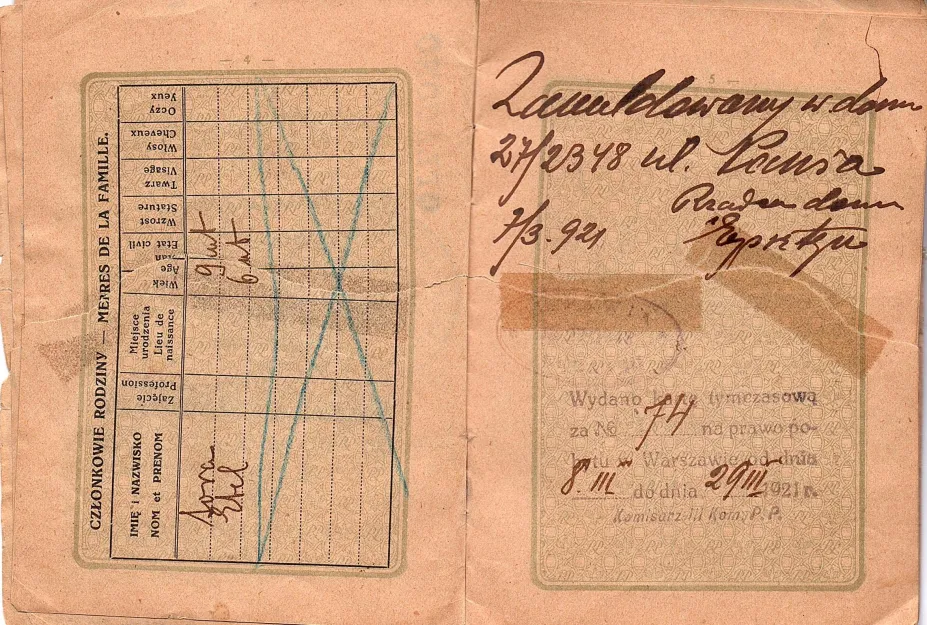 — 4 —
CZŁONKOWIE RODZINY — MEMRES DE LA FAMILLE.
IMIĘ i NAZWISKO
NOM et PRENOM
Zajęcie
Profession
Miejsce
urodzenia
Lieu de
naissance
Wiek
Age
Stan
Etat civil
Wzrost
Stature
Twarz
Visage
Włosy
Cheveux
Oczy
Yeux
9 lat
Etel 6 lat
— 5 —
Zameldowany w domu
27/2348 ul. Pańska
Rządca domu
7/3.921
Wydano kartę tymczasową
za № 74 na prawo po-
bytu w Warszawie od dnia
8.III do dnia 29 III 1921 r.
Komisarz III Kom. P. P.